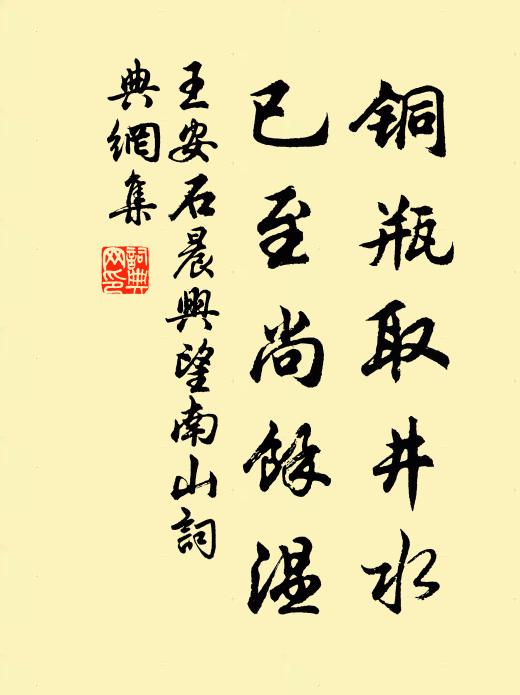 銅瓶取井水
已至尚餘温
王安石晨興望南山詞
典網集
詞典網印